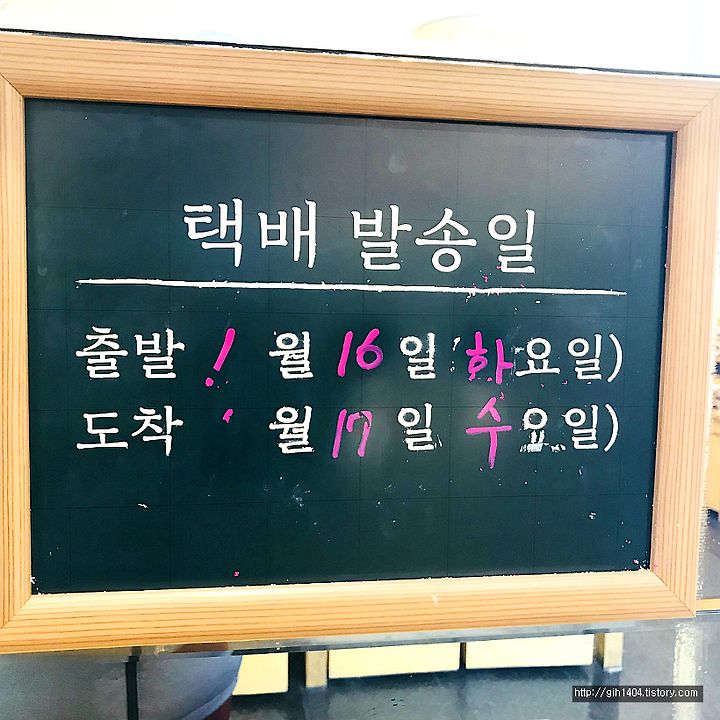 택배 발송일
출발 ! 월 16일 화요일)
도착 ' 월 17일 수요일)
http://gih1404.tistory.com